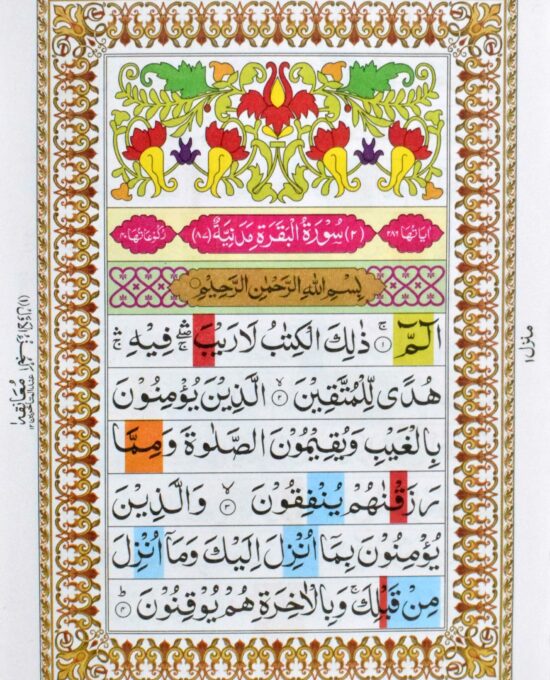 اٰیاتها ۲۸۶
(۲) سُوْرَةُ الْبَقَرَةِ مَدَنِیَّةٌ (۸۷)
رکوعاتها ۴۰
بِسْمِ اللهِ الرَّحْمٰنِ الرَّحِیْمِ
الٓمّٓ ۚ۝۱ ذٰلِكَ الْكِتٰبُ لَا رَیْبَ ۛۖۚ فِیْهِ ۛۚ
هُدًی لِّلْمُتَّقِیْنَ ۙ۝۲ الَّذِیْنَ یُؤْمِنُوْنَ
بِالْغَیْبِ وَیُقِیْمُوْنَ الصَّلٰوةَ وَمِمَّا
رَزَقْنٰهُمْ یُنْفِقُوْنَ ۙ۝۳ وَالَّذِیْنَ
یُؤْمِنُوْنَ بِمَاۤ اُنْزِلَ اِلَیْكَ وَمَاۤ اُنْزِلَ
مِنْ قَبْلِكَ ۚ وَبِالْاٰخِرَةِ هُمْ یُوْقِنُوْنَ ؕ۝۴
منزل ۱
معانقة ۱